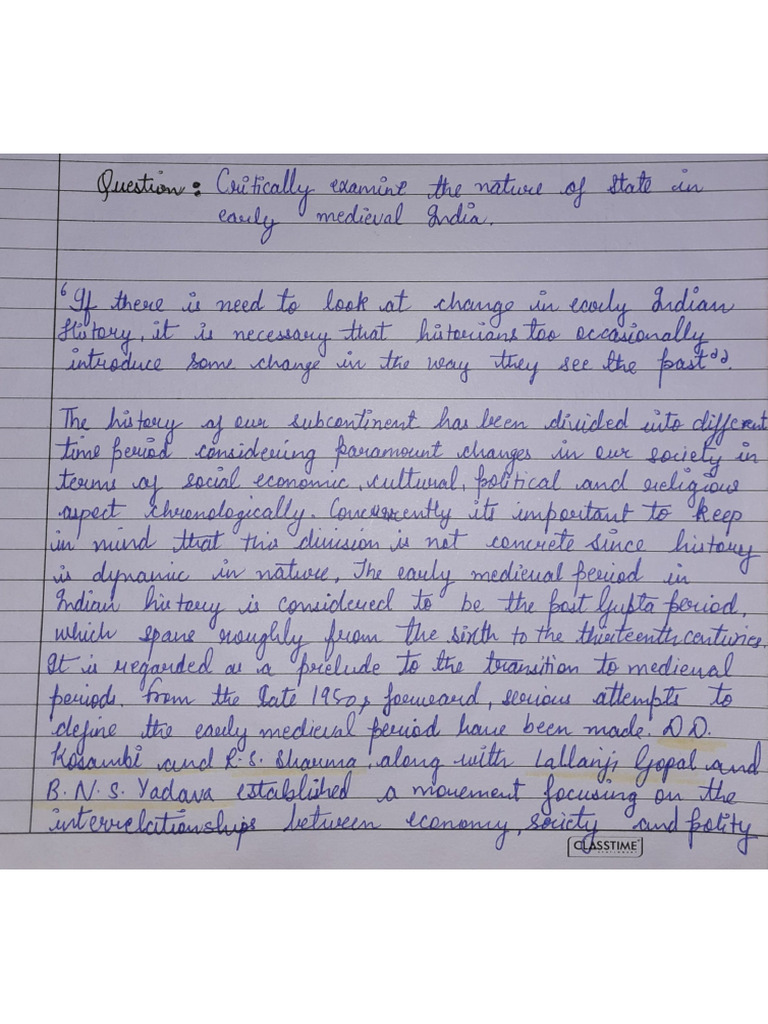 Question: Critically examine the nature of State in
early medieval India.
"If there is need to look at change in early Indian
History, it is necessary that historians too occasionally
introduce some change in the way they see the past".
The history of our subcontinent has been divided into different
time period considering paramount changes in our society in
terms of social economic, cultural, political and religious
aspect chronologically. Concurrently its important to keep
in mind that this division is not concrete since history
is dynamic in nature. The early medieval period in
Indian history is considered to be the post Gupta period,
which spans roughly from the sixth to the thirteenth centuries.
It is regarded as a prelude to the transition to medieval
periods. From the late 1950s forward, serious attempts to
define the early medieval period have been made. D.D.
Kosambi and R.S. Sharma, along with Lallanji Gopal and
B.N.S. Yadava established a movement focusing on the
interrelationships between economy, society and polity
CLASSTIME